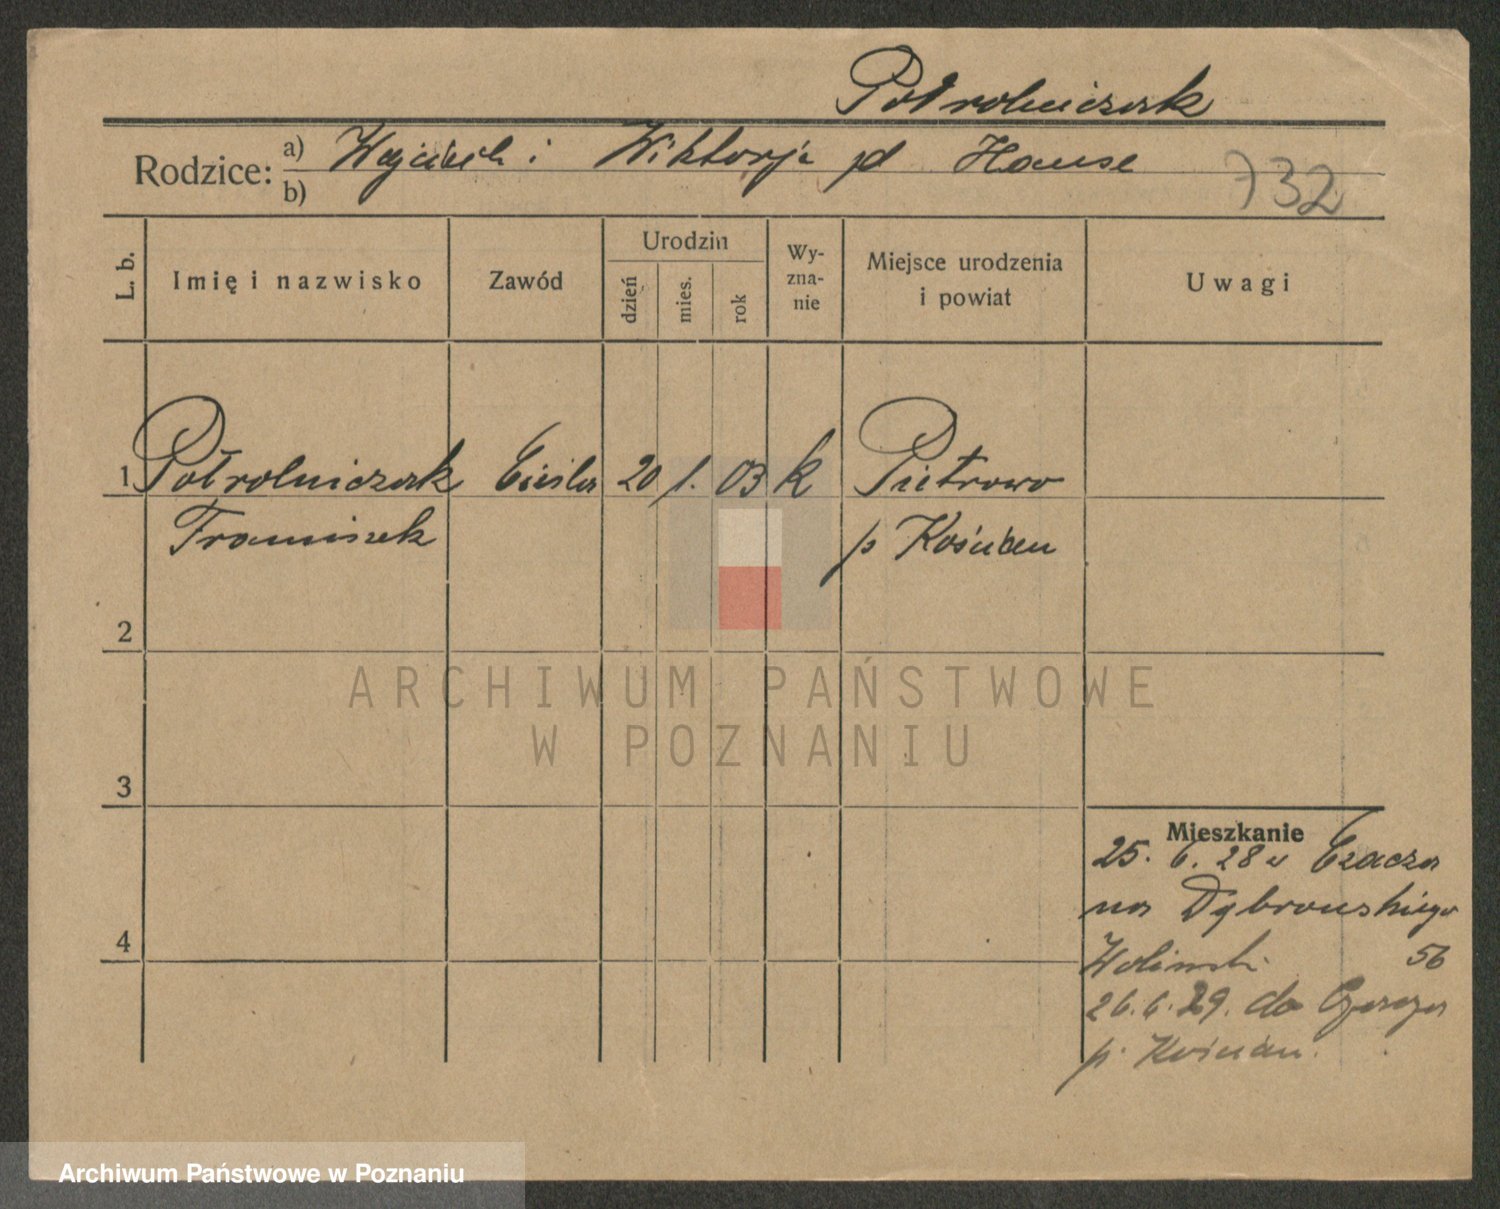 Półrolniczak
Rodzice: a) Wojciech i Wiktorja zd Hause
b)
732
L. b. Imię i nazwisko Zawód Urodzin dzień mies. rok Wy-zna-nie Miejsce urodzenia i powiat Uwagi
1 Półrolniczak Cieśla 20 1. 03 k Pietrowo
Franciszek p Kościan
2
ARCHIWUM PAŃSTWOWE
W POZNANIU
3
Mieszkanie
25. 6. 28 z Czacza
na Dąbrowskiego
4
Woliński 56
26. 6. 29. do Czacza
p. Kościan.
Archiwum Państwowe w Poznaniu